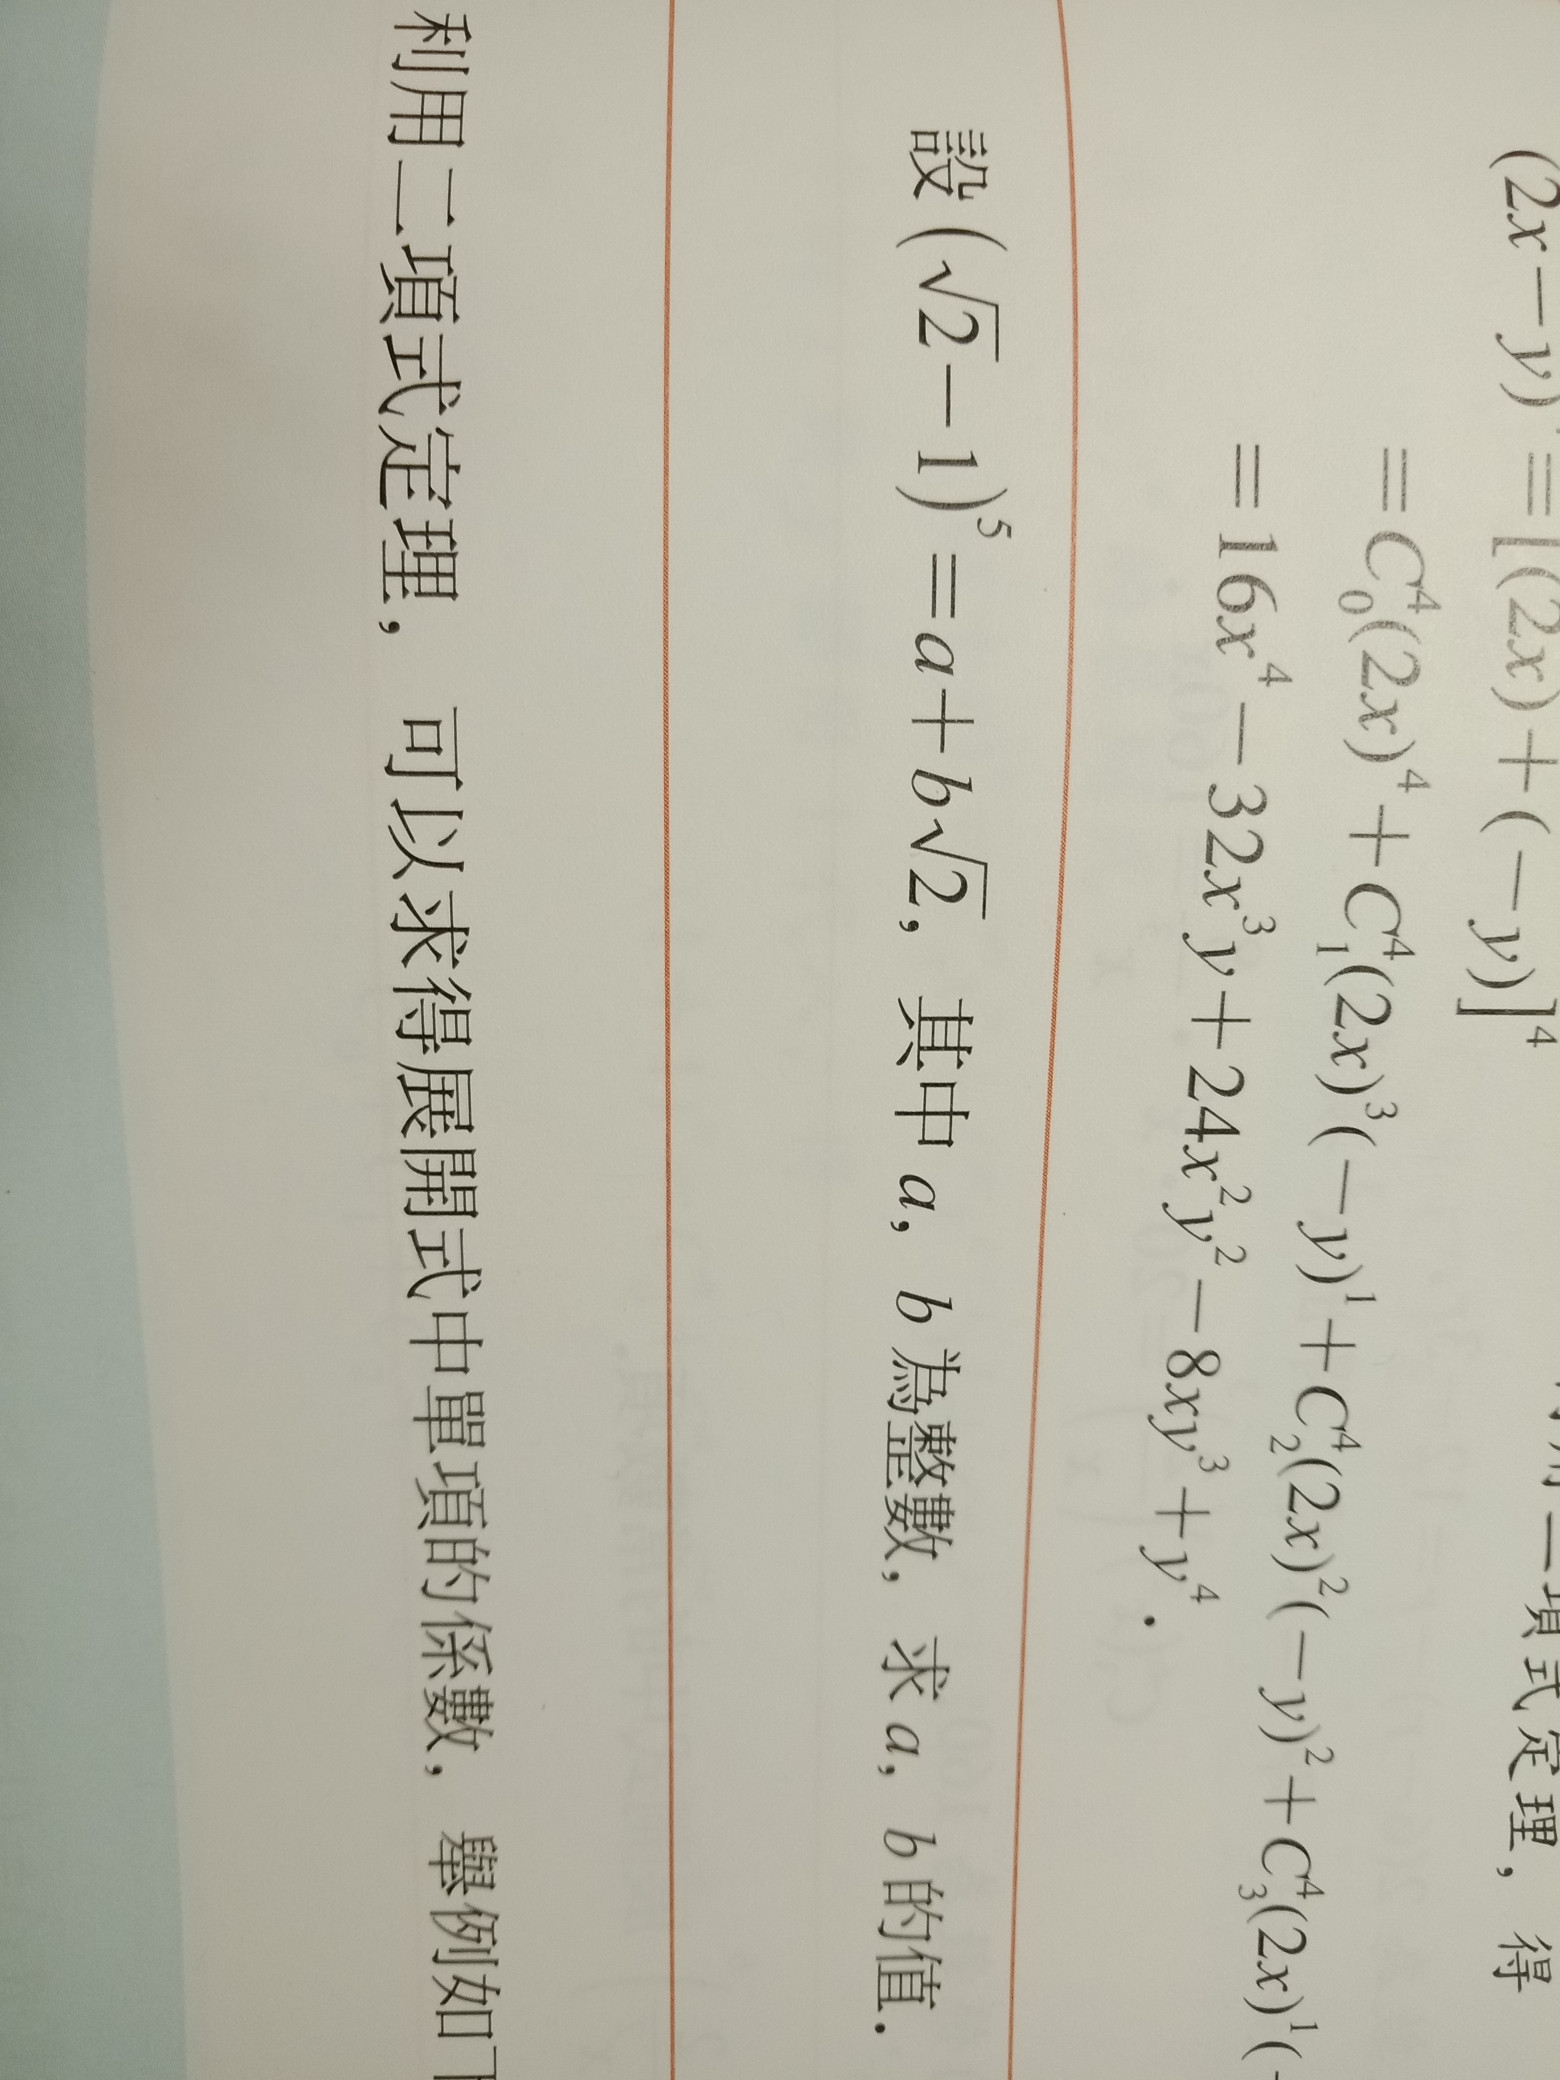 (2x-y)⁴=[(2x)+(-y)]⁴
項式定理, 得
=C⁴₀(2x)⁴+C⁴₁(2x)³(-y)¹+C⁴₂(2x)²(-y)²+C⁴₃(2x)¹(-
=16x⁴-32x³y+24x²y²-8xy³+y⁴.
設(√2-1)⁵=a+b√2, 其中 a, b 為整數, 求 a, b 的值.
利用二項式定理, 可以求得展開式中單項的係數, 舉例如